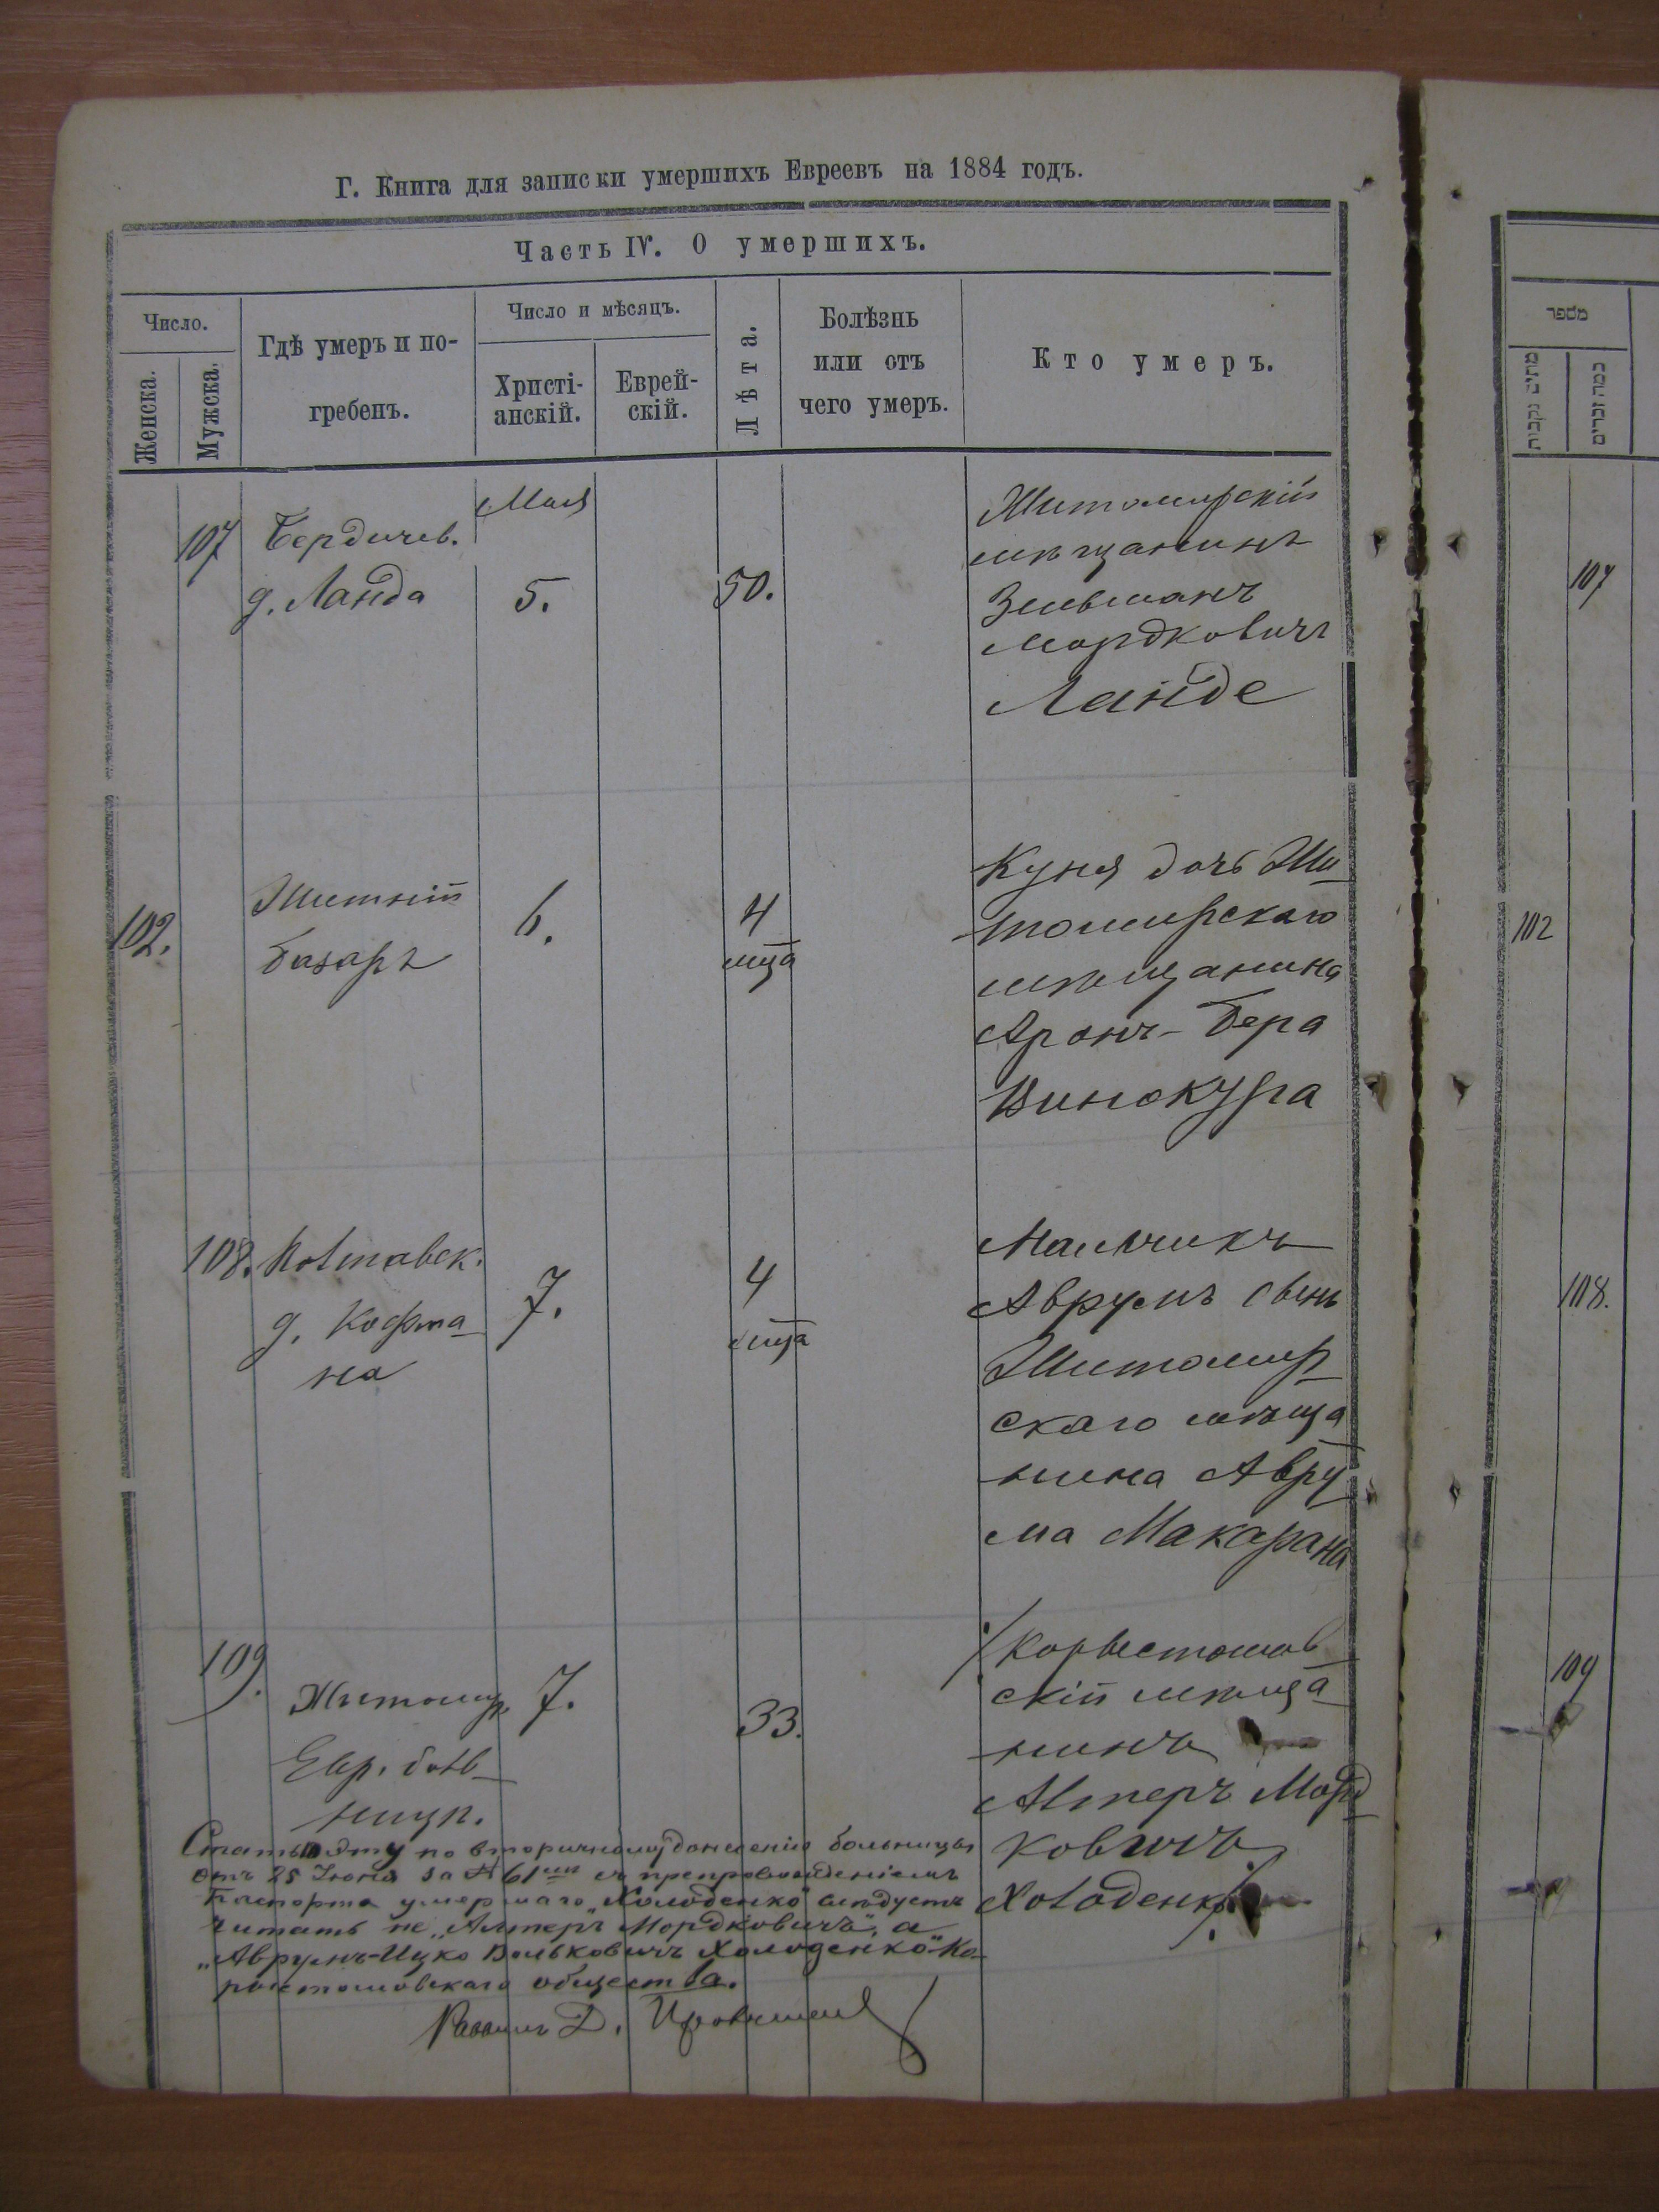 Г. Книга для записки умершихъ Евреевъ на 1884 годъ.
Часть IV. О умершихъ.
Число.
Женска.
Мужска.
Гдѣ умеръ и по-
гребенъ.
Число и мѣсяцъ.
Христі-
анскій.
Еврей-
скій.
Лѣта.
Болѣзнь
или отъ
чего умеръ.
Кто умеръ.
מספר
מתים נקבות
כמה זכרים
Мая
107
Бердичев.
д. Ланда
5.
50.
Житомирскій
мѣщанинъ
Зельманъ
Мордковичъ
Ланде
107
102.
Житній
базаръ
6.
4
мца
Куня дочь Жи
томирскаго
мѣщанина
Аронъ-Бера
Винокура
102
108.
Полтавск.
д. Кофма
на
7.
4
мца
Мальчикъ
Аврумъ сынъ
Житомир
скаго мѣща
нина Авру
ма Макарана
108.
109.
Житомир.
Евр. боль
ницѣ.
7.
33.
Коростошов
скій мѣща
нинъ
Алтеръ Морд
ковичъ
Холоденко
109
Статью эту по вторичному донесенію больницы
отъ 25 Іюня за № 61 съ препровожденіемъ
паспорта умершаго „Холоденко" слѣдуетъ
читать не „Алтеръ Мордковичъ", а
„Аврумъ-Ицко Вольковичъ Холоденко" Ко-
ростошовскаго общества.
Раввинъ Д.